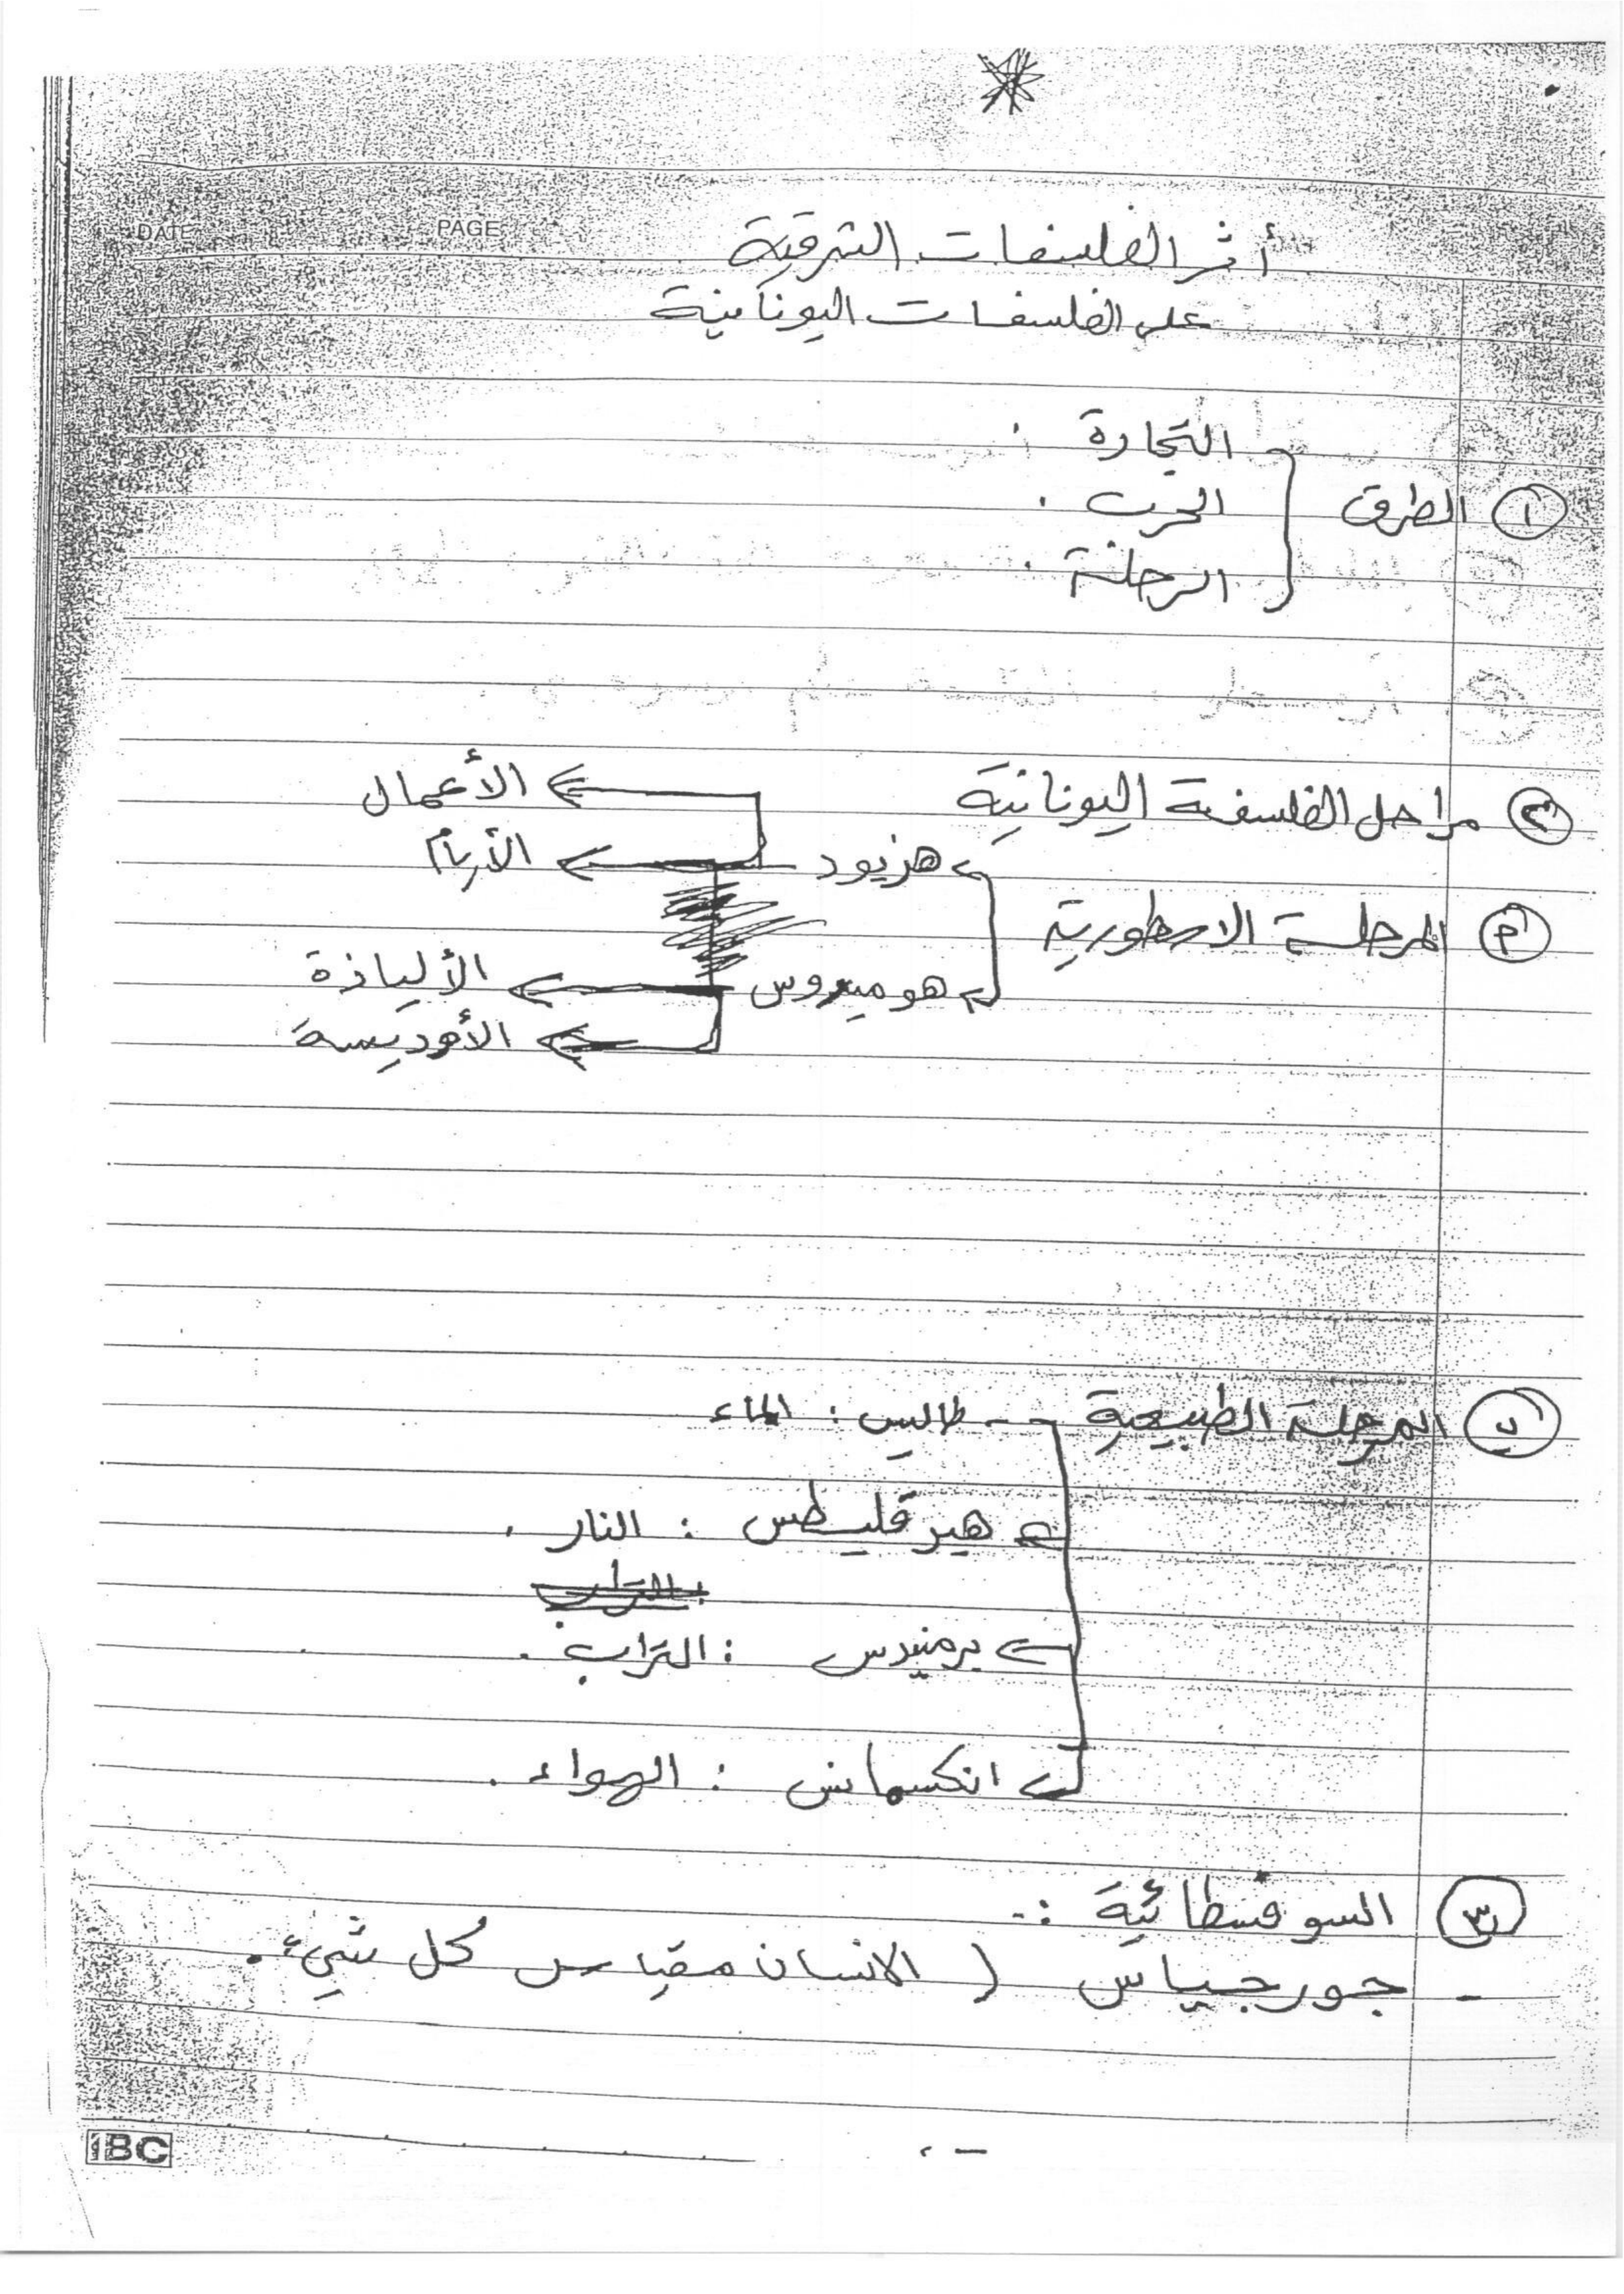 DATE PAGE
أثر الفلسفات الشرقية
على الفلسفات اليونانية
التجارة .
① الطرق
الحرب .
الرحلة .
② مراحل الفلسفة اليونانية
الأعمال
هزيود
الأيام
المرحلة الاسطورية
هوميروس
الألياذة
الأوديسة
ب المرحلة الطبيعية - طاليس : الماء
هيرقليطس : النار .
برمنيدس : التراب .
انكسمانس : الهواء .
③ السوفسطائية :-
- جورجياس ( الانسان مقياس كل شيء .
IBC